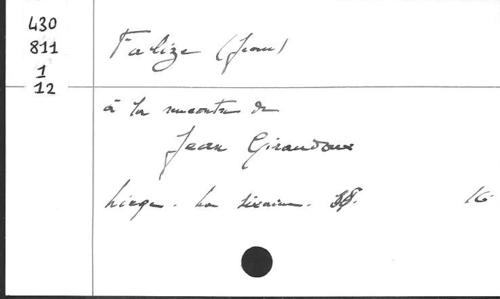 430
811
1
12
Falize (Jean)
à la rencontre de
Jean Giraudoux
Liège. La
16